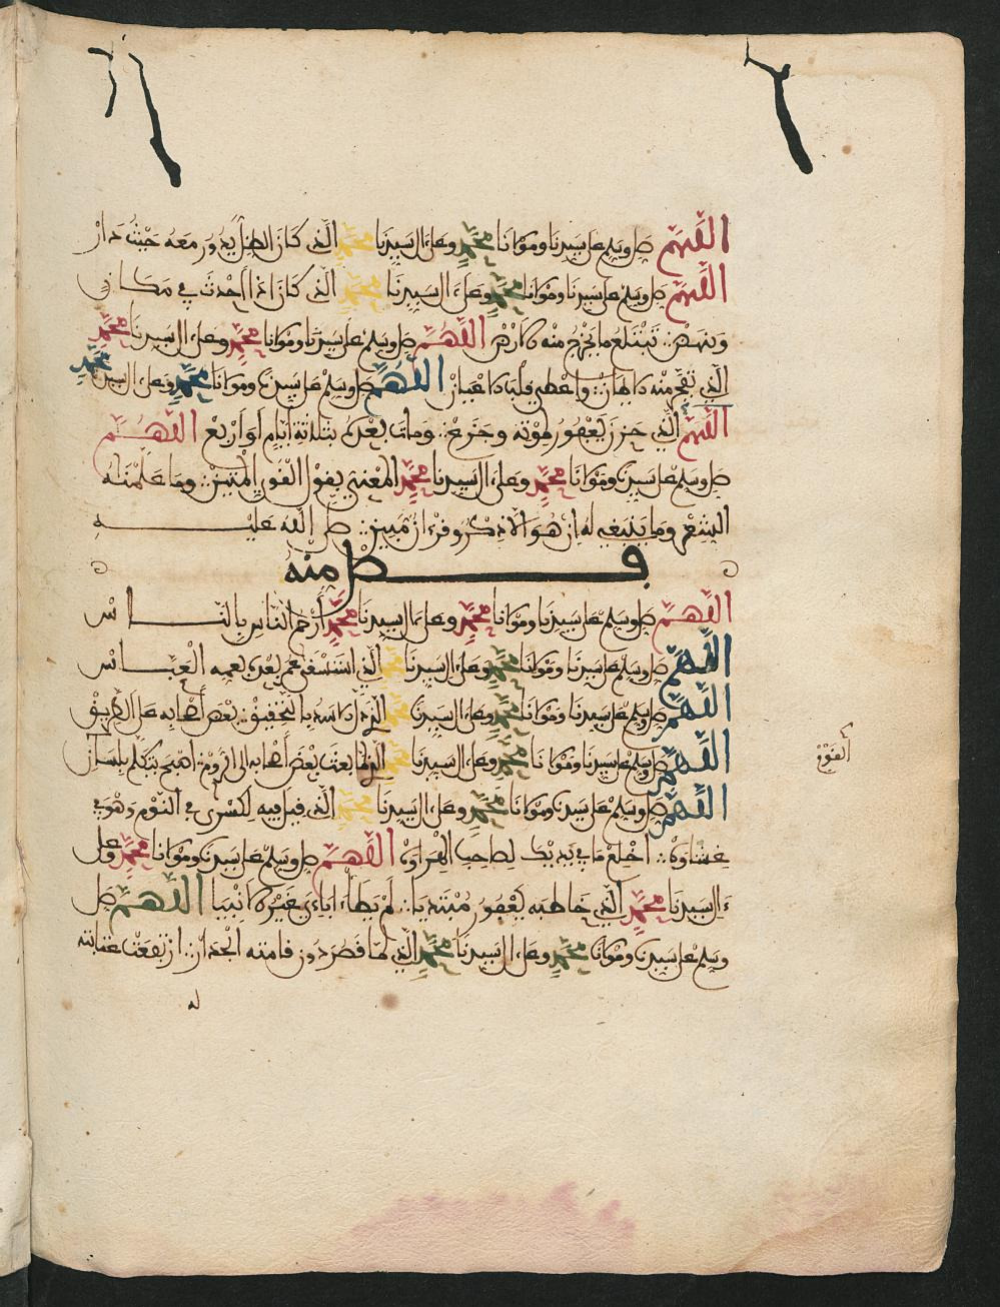 اللهم صل وسلم على سيدنا ومولانا محمد وعلى ءال سيدنا محمد الذي كان الظل يدور معه حيث دار
اللهم صل وسلم على سيدنا ومولانا محمد وعلى ءال سيدنا محمد الذي كان اذا أحدث في مكان
تبتلع ما يخرج منه الارض اللهم صل وسلم على سيدنا ومولانا محمد وعلى ءال سيدنا محمد
الذي منه اللهم صل وسلم على سيدنا ومولانا محمد وعلى ءال سيدنا محمد
اللهم الذي حزن يعفور لموته وجزع ومات بعده بثلاثة أيام أو أربع اللهم
صل وسلم على سيدنا ومولانا محمد وعلى ءال سيدنا محمد المعني بقول القوي المتين وما علمنه
الشعر وما ينبغي له إن هو الا ذكر وقرءان مبين صلى الله عليه
فصل منه
اللهم صل وسلم على سيدنا ومولانا محمد وعلى ءال سيدنا محمد أرحم الناس بالناس
اللهم صل وسلم على سيدنا ومولانا محمد وعلى ءال سيدنا محمد الذي استسقى عمر بعده بعمه العباس
اللهم صل وسلم على سيدنا ومولانا محمد وعلى ءال سيدنا محمد الذي دل الاسد بالتحقيق بعض أصحابه على الطريق
اللهم صل وسلم على سيدنا ومولانا محمد وعلى ءال سيدنا محمد الذي لما بعث بعض أصحابه الى الروم أصبح يتكلم بلسان
القوم
اللهم صل وسلم على سيدنا ومولانا محمد وعلى ءال سيدنا محمد الذي قيل فيه لكسرى في النوم وهو في
غشاوه اخلع ما في يديك لصاحب الهراوه اللهم صل وسلم على سيدنا ومولانا محمد وعلى
ءال سيدنا محمد الذي خاطبه يعفور مبتديا لم يطأ ءاباءي غير الانبيا اللهم صل
وسلم على سيدنا ومولانا محمد وعلى ءال سيدنا محمد الذي لما قصر دون قامته الجدار ارتفعت عتابته
له